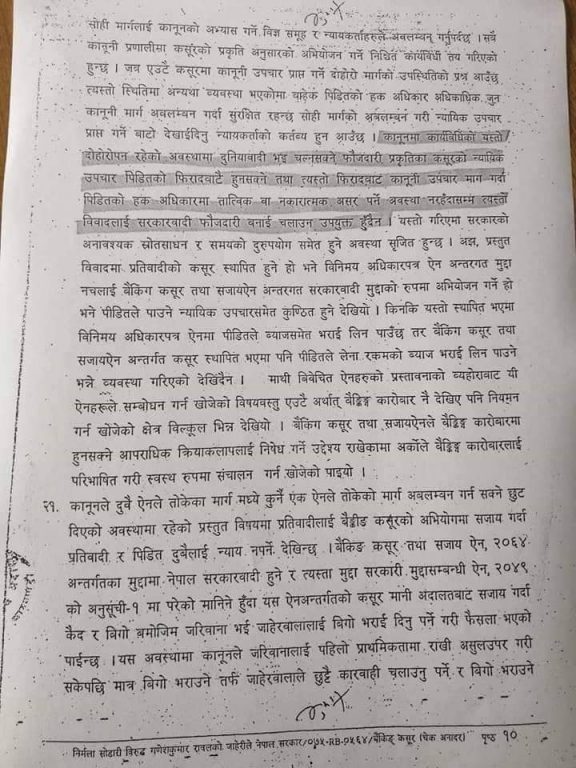 सोही मार्गलाई कानूनको अभ्यास गर्ने विज्ञ समूह र न्यायकर्ताहरुले अवलम्बन गर्नुपर्दछ । सवै
कानूनी प्रणालीमा कसूरको प्रकृति अनुसारको अभियोजन गर्ने निश्चित कार्यविधी तय गरिएको
हुन्छ । जव एउटै कसूरमा कानूनी उपचार प्राप्त गर्ने दोहोरो मार्गको उपस्थितिको प्रश्न आउँछ
त्यस्तो स्थितिमा अन्यथा व्यवस्था भएकोमा वाहेक पिडितको हक अधिकार अधिकाधिक जुन
कानूनी मार्ग अवलम्बन गर्दा सुरक्षित रहन्छ सोही मार्गको अवलम्बन गरी न्यायिक उपचार
प्राप्त गर्ने बाटो देखाईदिनु न्यायकर्ताको कर्तव्य हुन आउँछ । कानूनमा कार्यविधिको यस्तो
दोहोरोपन रहेको अवस्थामा दुनियावादी भइ चल्नसक्ने फौजदारी प्रकृतिका कसूरको न्यायिक
उपचार पिडितको फिरादवाटै हुनसक्ने तथा त्यस्तो फिरादवाट कानूनी उपचार माग गर्दा
पिडितको हक अधिकारमा तात्विक वा नकारात्मक असर पर्ने अवस्था नरहँदासम्म त्यस्तो
विवादलाई सरकारवादी फौजदारी बनाई चलाउन उपयुक्त हुँदैन । यस्तो गरिएमा सरकारको
अनावश्यक स्रोतसाधन र समयको दुरुपयोग समेत हुने अवस्था सृजित हुन्छ । अझ, प्रस्तुत
विवादमा प्रतिवादीको कसूर स्थापित हुने हो भने विनिमय अधिकारपत्र ऐन अन्तरगत मुद्दा
नचलाई बैंकिंग कसूर तथा सजायऐन अन्तरगत सरकारवादी मुद्दाको रुपमा अभियोजन गर्ने हो
भने पीडितले पाउने न्यायिक उपचारसमेत कुण्ठित हुने देखियो । किनकि यस्तो स्थापित भएमा
विनिमय अधिकारपत्र ऐनमा पीडितले ब्याजसमेत भराई लिन पाउँछ तर बैंकिंग कसूर तथा
सजायऐन अन्तर्गत कसूर स्थापित भएमा पनि पीडितले लेना रकमको ब्याज भराई लिन पाउने
भन्ने व्यवस्था गरिएको देखिंदैन । माथी बिबेचित ऐनहरुको प्रस्तावनाको व्यहोराबाट यी
ऐनहरूले सम्बोधन गर्न खोजेको विषयवस्तु एउटै अर्थात् बैङ्किङ्ग कारोबार नै देखिए पनि नियमन
गर्न खोजेको क्षेत्र विल्कूल भिन्न देखीयो । बैंकिंग कसूर तथा सजायऐनले बैङ्किङ्ग कारोबारमा
हुनसक्ने आपराधिक क्रियाकलापलाई निषेध गर्ने उद्देश्य राखेकामा अर्कोले बैङ्किङ्ग कारोबारलाई
परिभाषित गरी स्वस्थ रुपमा संचालन गर्न खोजेको पाइयो ।
२१. कानूनले दुवै ऐनले तोकेका मार्ग मध्ये कुनै एक ऐनले तोकेको मार्ग अबलम्बन गर्न सक्ने छुट
दिएको अवस्थामा रहेको प्रस्तुत विषयमा प्रतिवादीलाई बैङ्कीङ कसूरको अभियोगमा सजाय गर्दा
प्रतिवादी र पिडित दुबैलाई न्याय नपर्ने देखिन्छ । बैंकिङ कसूर तथा सजाय ऐन, २०६४
अन्तर्गतका मुद्दामा नेपाल सरकारवादी हुने र त्यस्ता मुद्दा सरकारी मुद्दासम्बन्धी ऐन, २०४९
को अनुसूची-१ मा परेको मानिने हुँदा यस ऐनअन्तर्गतको कसूर मानी अदालतबाट सजाय गर्दा
कैद र बिगो बमोजिम जरिवाना भई जाहेरवालालाई बिगो भराई दिनु पर्ने गरी फैसला भएको
पाईन्छ । यस अवस्थामा कानूनले जरिवानालाई पहिलो प्राथमिकतामा राखी असुलउपर गरी
सकेपछि मात्र बिगो भराउने तर्फ जाहेरवालाले छुट्टै कारवाही चलाउनु पर्ने र बिगो भराउने
निर्मला सोडारी विरुद्ध गणेशकुमार रावलको जाहेरीले नेपाल सरकार/०७५-RB-०५६४/बैंकिङ्ग कसूर (चेक अनादर) पृष्ठ १०